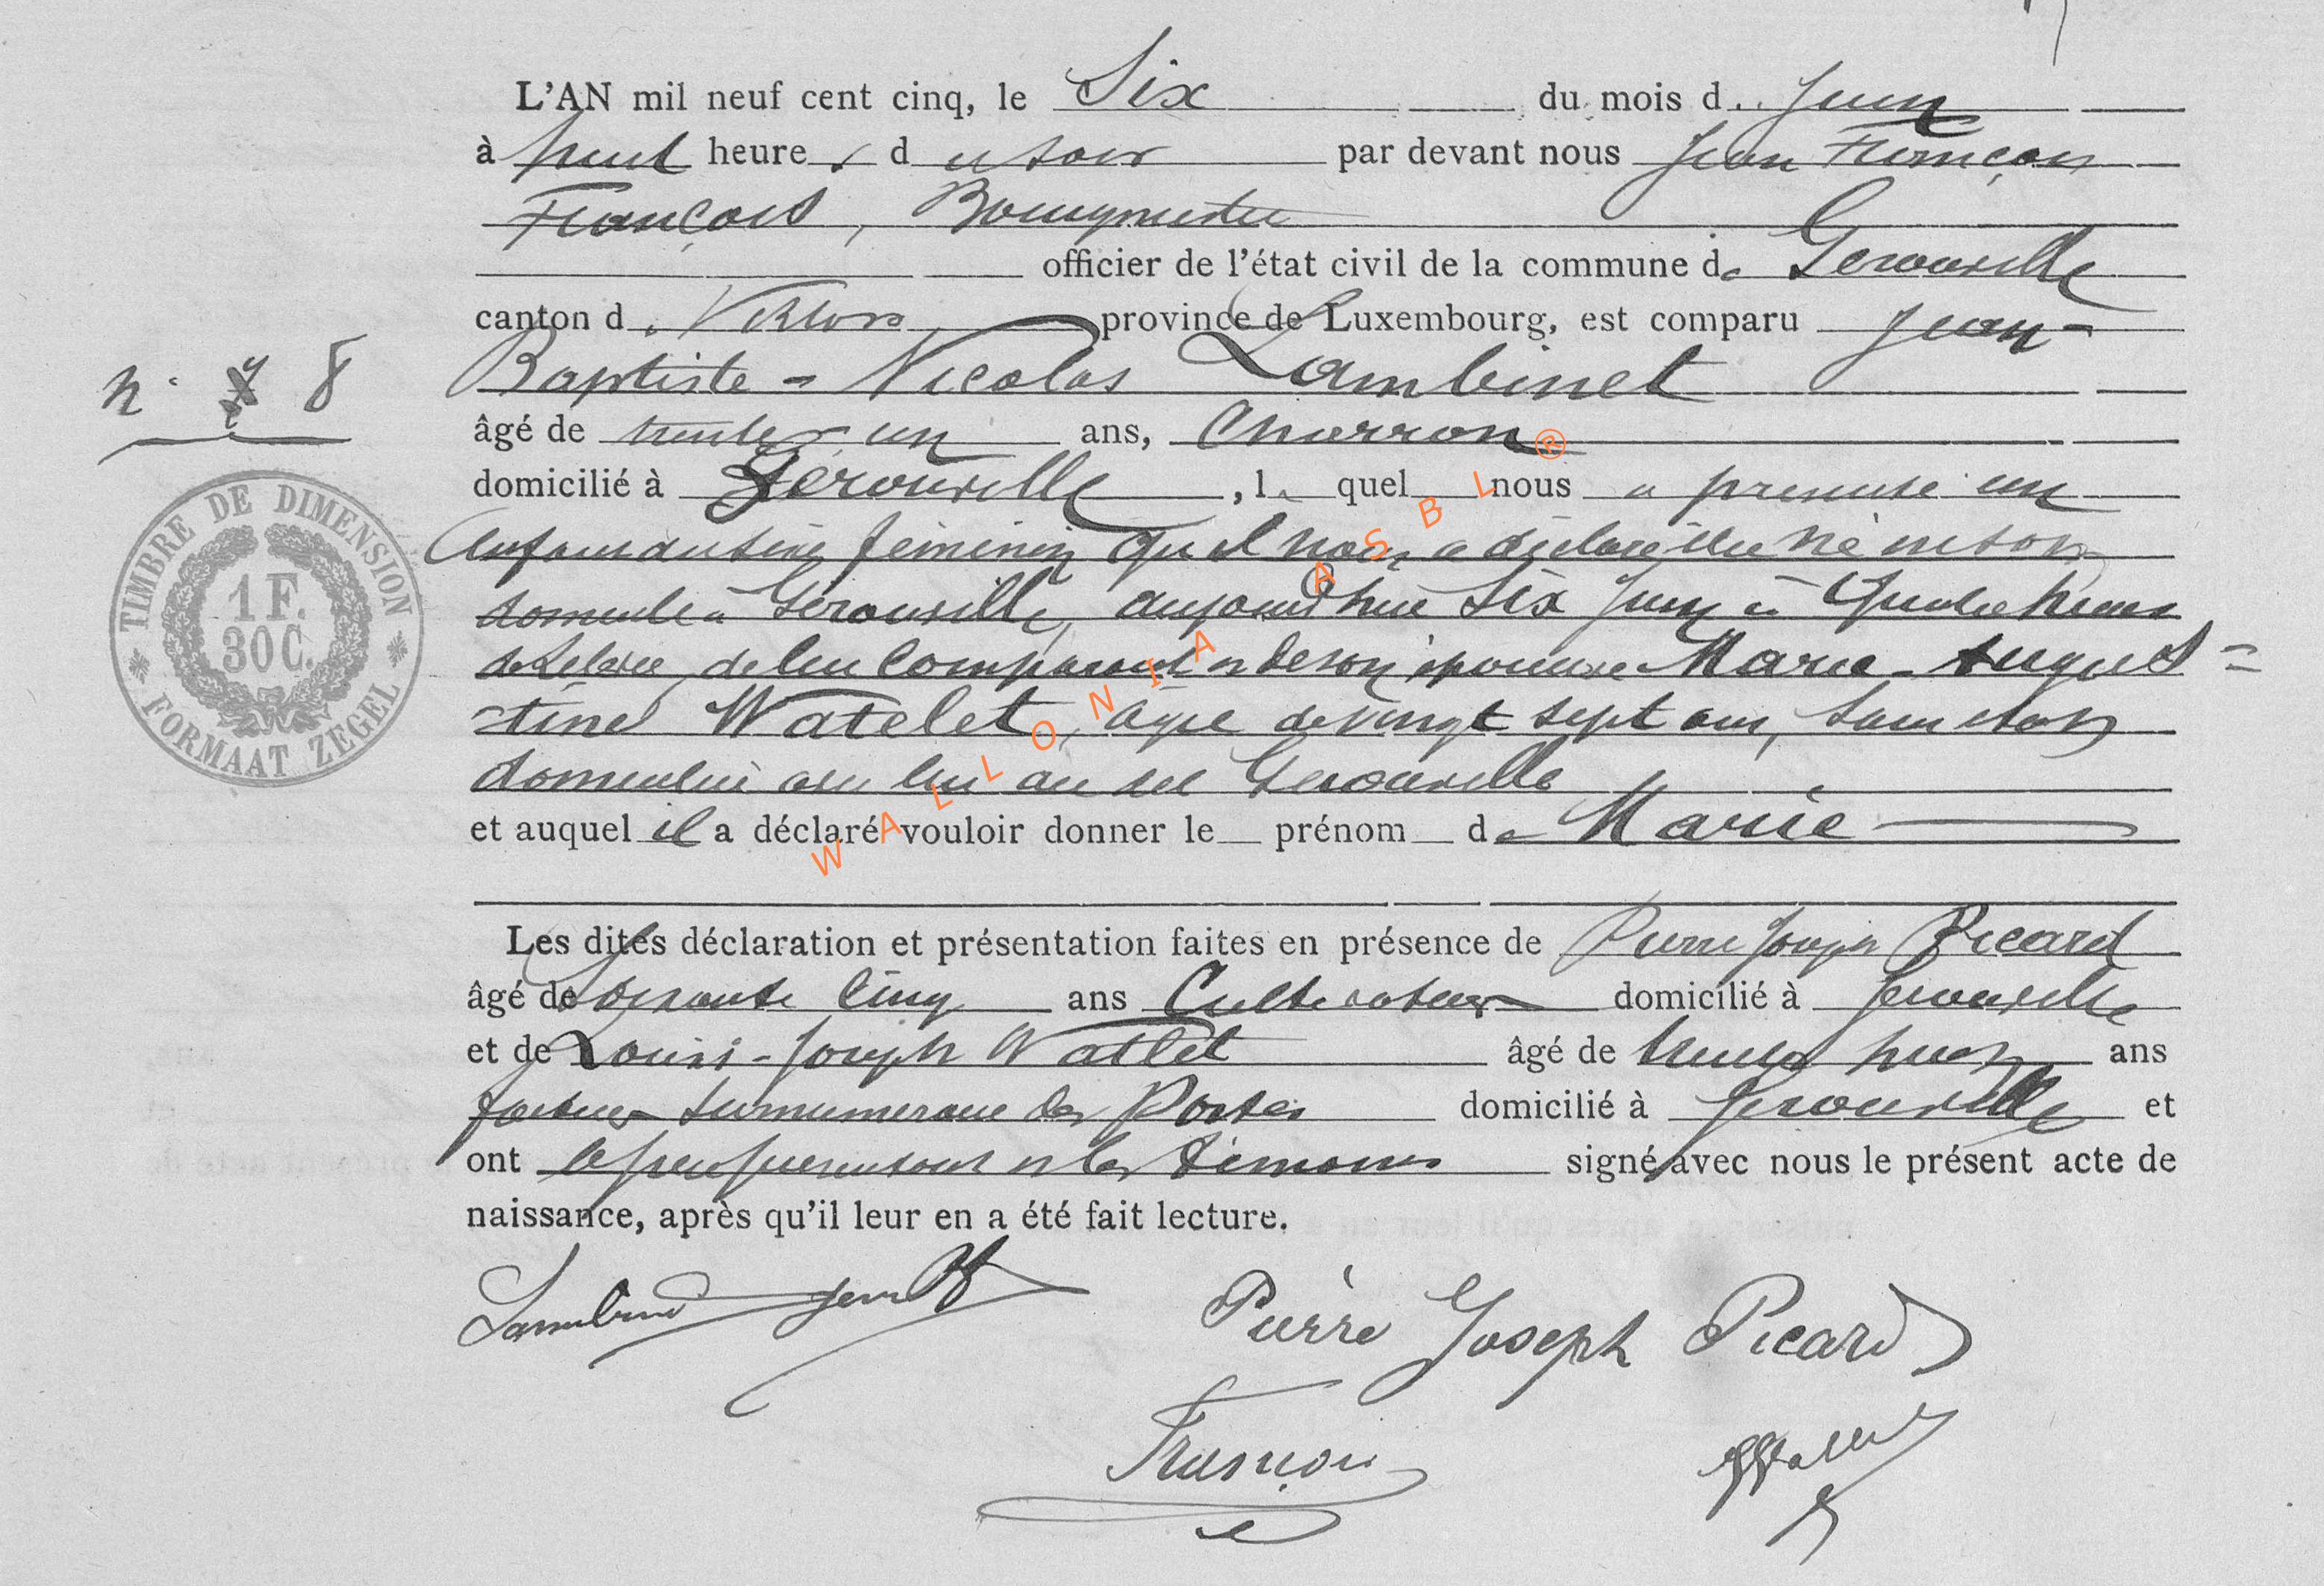 L'AN mil neuf cent cinq, le Six du mois de Juin
à huit heures du soir par devant nous Jean François
François, Bourgmestre
officier de l'état civil de la commune de Gérouville
canton de Virton, province de Luxembourg, est comparu Jean-
Baptiste-Nicolas Lambinet
âgé de trente un ans, Charron
domicilié à Gérouville, le quel nous a présenté un
Enfant du sexe féminin qu'il nous a déclaré être né en son
domicile à Gérouville, aujourd'hui Six Juin à Quatre heures
de relevée, de lui Comparant et de son épouse Marie-August=
=tine Watelet, âgée de vingt sept ans, Sans état
domiciliée avec lui au dit Gérouville
et auquel il a déclaré vouloir donner le prénom de Marie
Les dites déclaration et présentation faites en présence de Pierre Joseph Picard
âgé de Soixante Cinq ans Cultivateur domicilié à Gérouville
et de Louis-Joseph Watlet âgé de ans
facteur surnuméraire des Postes domicilié à Gérouville et
ont le père présentant et les témoins signé avec nous le présent acte de
naissance, après qu'il leur en a été fait lecture.
n° 8
TIMBRE DE DIMENSION
1 F.
30 C.
FORMAAT ZEGEL
WALLONIA ASBL ®
Lambinet Jean Bte
Pierre Joseph Picard
François